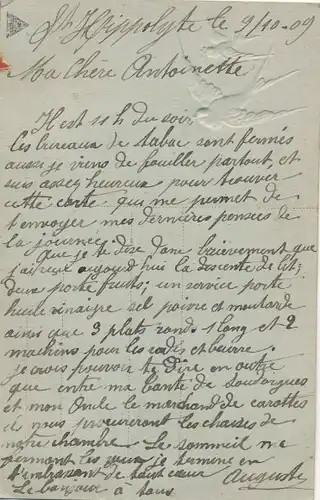 St Hippolyte le 9/10-09
Ma Chère Antoinette
Il est 11 h du soir
les bureaux de tabac sont fermés
aussi je viens de fouiller partout, et
suis assez heureux pour trouver
cette carte qui me permet de
t'envoyer mes dernières pensées de
la journée.
Que je te dise donc brièvement que
j'ai reçu aujourd'hui la descente de lit;
deux porte fruits; un service porte
huile vinaigre sel poivre et moutarde
ainsi que 3 plats ronds 1 long et 2
machins pour les radis et beurre.
je crois pouvoir te dire en outre
que entre ma tante de
et mon Oncle le marchand de carottes
ils nous procureront les chaises de
notre chambre. Le sommeil me
fermant les yeux je termine en
t'embrassant de tout cœur
Auguste
Le bonjour à tous